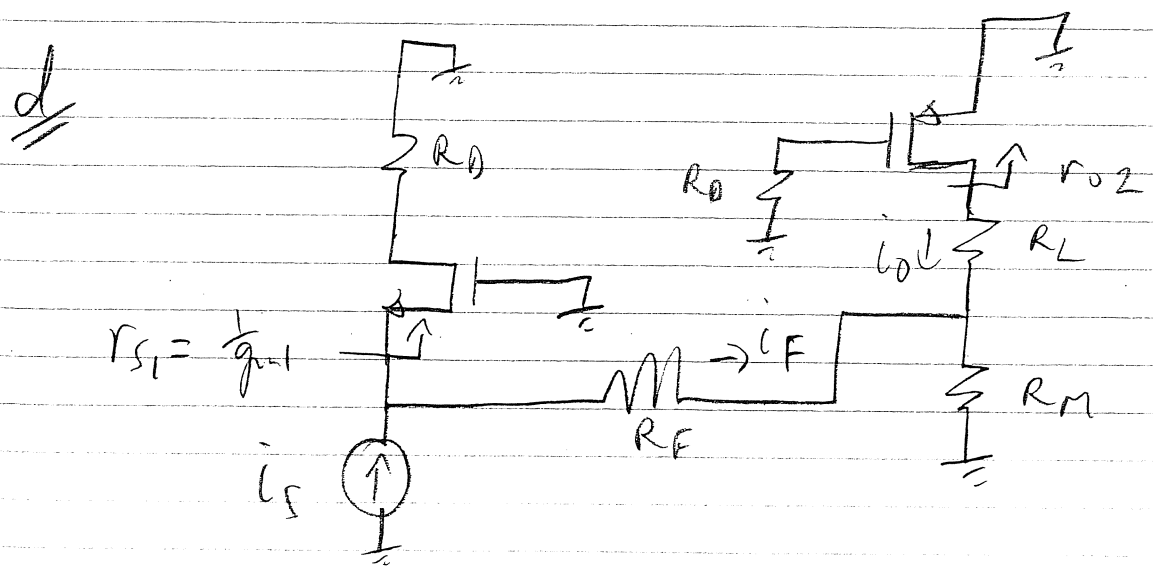 d
R_D
R_D
r_o2
i_o ↓
R_L
r_S1 = 1/g_m1
→ i_F
R_F
R_M
i_s